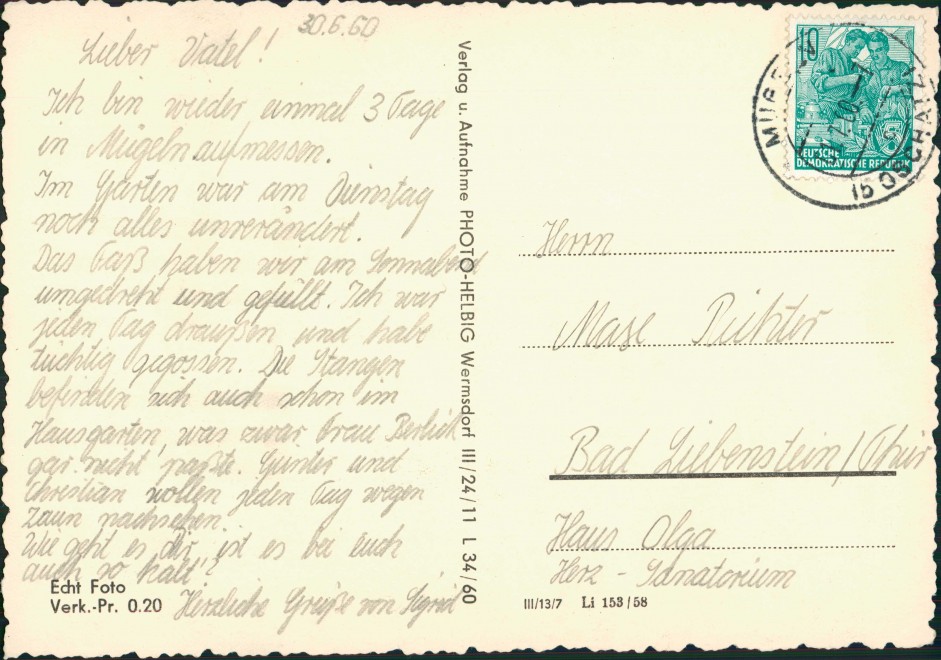 30.6.60
Lieber Vatel!
Ich bin wieder einmal 3 Tage
in Mügeln aufmessen.
Im Garten war am Dienstag
noch alles unverändert.
Das Faß haben wir am Sonnabend
umgedreht und gefüllt. Ich war
jeden Tag draußen und habe
tüchtig gegossen. Die Stangen
befinden sich auch schon im
Hausgarten, was zwar Frau Berlick
gar nicht paßte. Günter und
Christian wollen jeden Tag wegen
Zaun nachsehen.
Wie geht es dir, ist es bei euch
auch so kalt?
Herzliche Grüße von Sigrid
Echt Foto
Verk.-Pr. 0.20
Verlag u. Aufnahme PHOTO-HELBIG Wermsdorf III/24/11 L 34/60
10
DEUTSCHE
DEMOKRATISCHE REPUBLIK
OSCHATZ
Herrn
Richter
Bad Liebenstein/Thür
Haus Olga
Herz-Sanatorium
III/13/7 Li 153/58